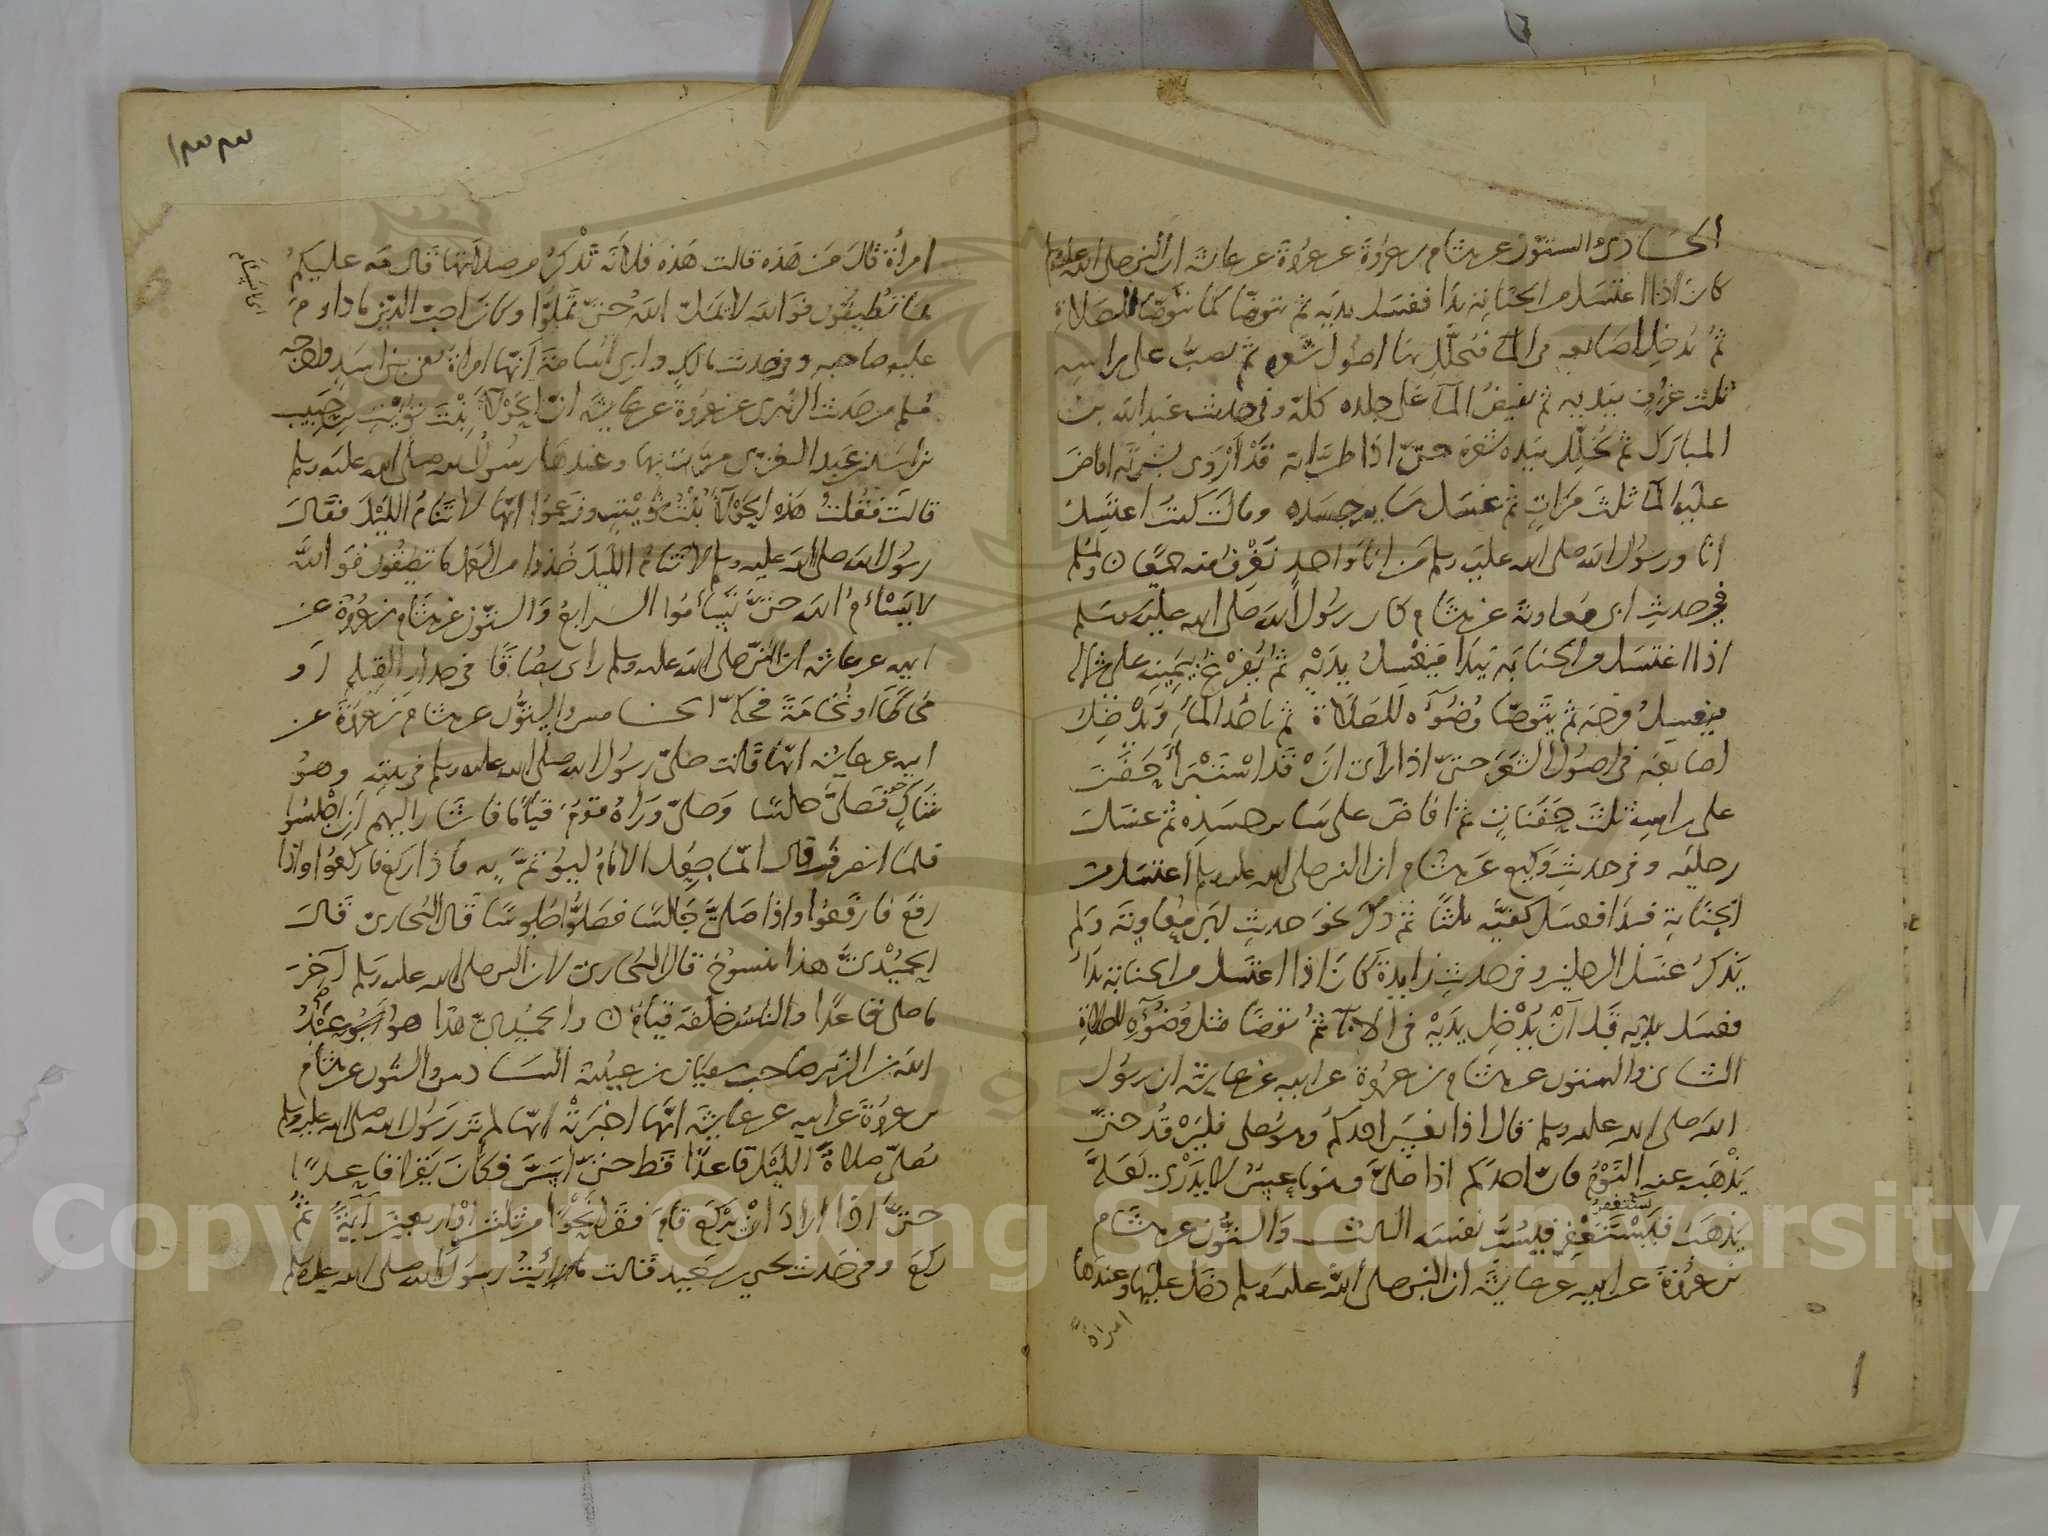 الحادي والستون عن هشام بن عروة عن عروة عن عائشة ان النبي صلى الله عليه وسلم
كان اذا اغتسل من الجنابة بدا فغسل يديه ثم يتوضا كما يتوضا للصلاة
ثم يدخل اصابعه في الماء فيخلل بها اصول شعره ثم يصب على راسه
ثلث غرف بيديه ثم يفيض الماء على جلده كله وفي حديث عبد الله بن
المبارك ثم يخلل بيده شعره حتى اذا ظن انه قد أروى بشرته افاض
عليه الماء ثلث مرات ثم غسل سائر جسده وقالت كنت اغتسل
انا ورسول الله صلى الله عليه وسلم من اناء واحد نغرف منه جميعا ولمسلم
في حديث ابي معاوية عن هشام كان رسول الله صلى الله عليه وسلم
اذا اغتسل من الجنابة يبدا فيغسل يديه ثم يفرغ بيمينه على شماله
فيغسل فرجه ثم يتوضا وضوءه للصلاة ثم ياخذ الماء ويدخل
اصابعه في اصول الشعر حتى اذا راى ان قد استبرأ حفن
على راسه ثلث حفنات ثم افاض على سائر جسده ثم غسل
رجليه وفي حديث وكيع عن هشام ان النبي صلى الله عليه وسلم اغتسل من
الجنابة فبدا فغسل كفيه ثلثا ثم ذكر نحو حديث ابي معاوية ولم
يذكر غسل الرجلين وفي حديث زايدة كان اذا اغتسل من الجنابة بدأ
فغسل يديه قبل أن يدخل يديه في الاناء ثم توضا مثل وضوءه للصلاة
الثاني والستون عن هشام بن عروة عن ابيه عن عائشة ان رسول
الله صلى الله عليه وسلم قال اذا نعس احدكم وهو يصلى فليرقد حتى
يذهب عنه النوم فان احدكم اذا صلى وهو ناعس لا يدرى لعله
يستغفر
يذهب فيستغفر فيسب نفسه الثالث والستون عن هشام
بن عروة عن ابيه عن عائشة ان النبي صلى الله عليه وسلم دخل عليها وعندها
امراة
١٣٣
امرأة قال من هذه قالت هذه فلانة تذكر من صلاتها قال مه عليكم
بما تطيقون فوالله لا يمل الله حتى تملوا وكان احب الدين ما داوم
عليه صاحبه وفي حديث مالك وابي اسامة انها امراة من بني اسد واخرجه
مسلم من حديث الزهرى عن عروة عن عائشة ان الحولاء بنت تويت بن حبيب
بن اسد بن عبد العزى مرت بها وعندها رسول الله صلى الله عليه وسلم
قالت فقلت هذه الحولاء بنت تويت وزعموا انها لا تنام الليل فقال
رسول الله صلى الله عليه وسلم لا تنام الليل خذوا من العمل ما تطيقون فوالله
لا يسأم الله حتى تسأموا الرابع والستون عن هشام بن عروة عن
ابيه عن عائشة ان النبي صلى الله عليه وسلم راى بصاقا في جدار القبلة أو
مخاطا او نخامة فحكه الخامس والستون عن هشام بن عروة عن
ابيه عن عائشة انها قالت صلى رسول الله صلى الله عليه وسلم في بيته وهو
شاك فصلى جالسا وصلى وراه قوم قياما فاشار اليهم ان اجلسوا
فلما انصرف قال انما جعل الامام ليؤتم به فاذا ركع فاركعوا واذا
رفع فارفعوا واذا صلى جالسا فصلوا جلوسا قال البخارى قال
الحميدى هذا منسوخ قال البخارى لان النبي صلى الله عليه وسلم آخر
ما صلى قاعدا والناس خلفه قيام والحميدى هذا هو ابو بكر عبد
الله بن الزبير صاحب سفيان بن عيينة السادس والستون عن هشام
بن عروة عن ابيه عن عائشة انها اخبرته انها لم تر رسول الله صلى الله عليه وسلم
يصلى صلاة الليل قاعدا قط حتى اسن فكان يقرا قاعدا
حتى اذا اراد ان يركع قام فقرا نحوا من ثلثين او اربعين آية ثم
ركع وفي حديث يحيى بن سعيد قالت ما رأيت رسول الله صلى الله عليه وسلم
Copyright © King Saud University
1957